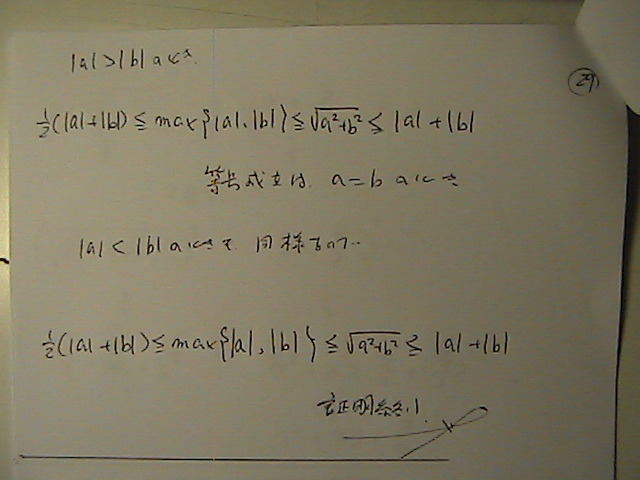 |a|>|b| のとき
29
½(|a|+|b|) ≦ max{|a|,|b|} ≦ √a²+b² ≦ |a|+|b|
等号成立は、a=b のとき
|a|<|b| のときも 同様なので…
½(|a|+|b|) ≦ max{|a|,|b|} ≦ √a²+b² ≦ |a|+|b|
証明終り